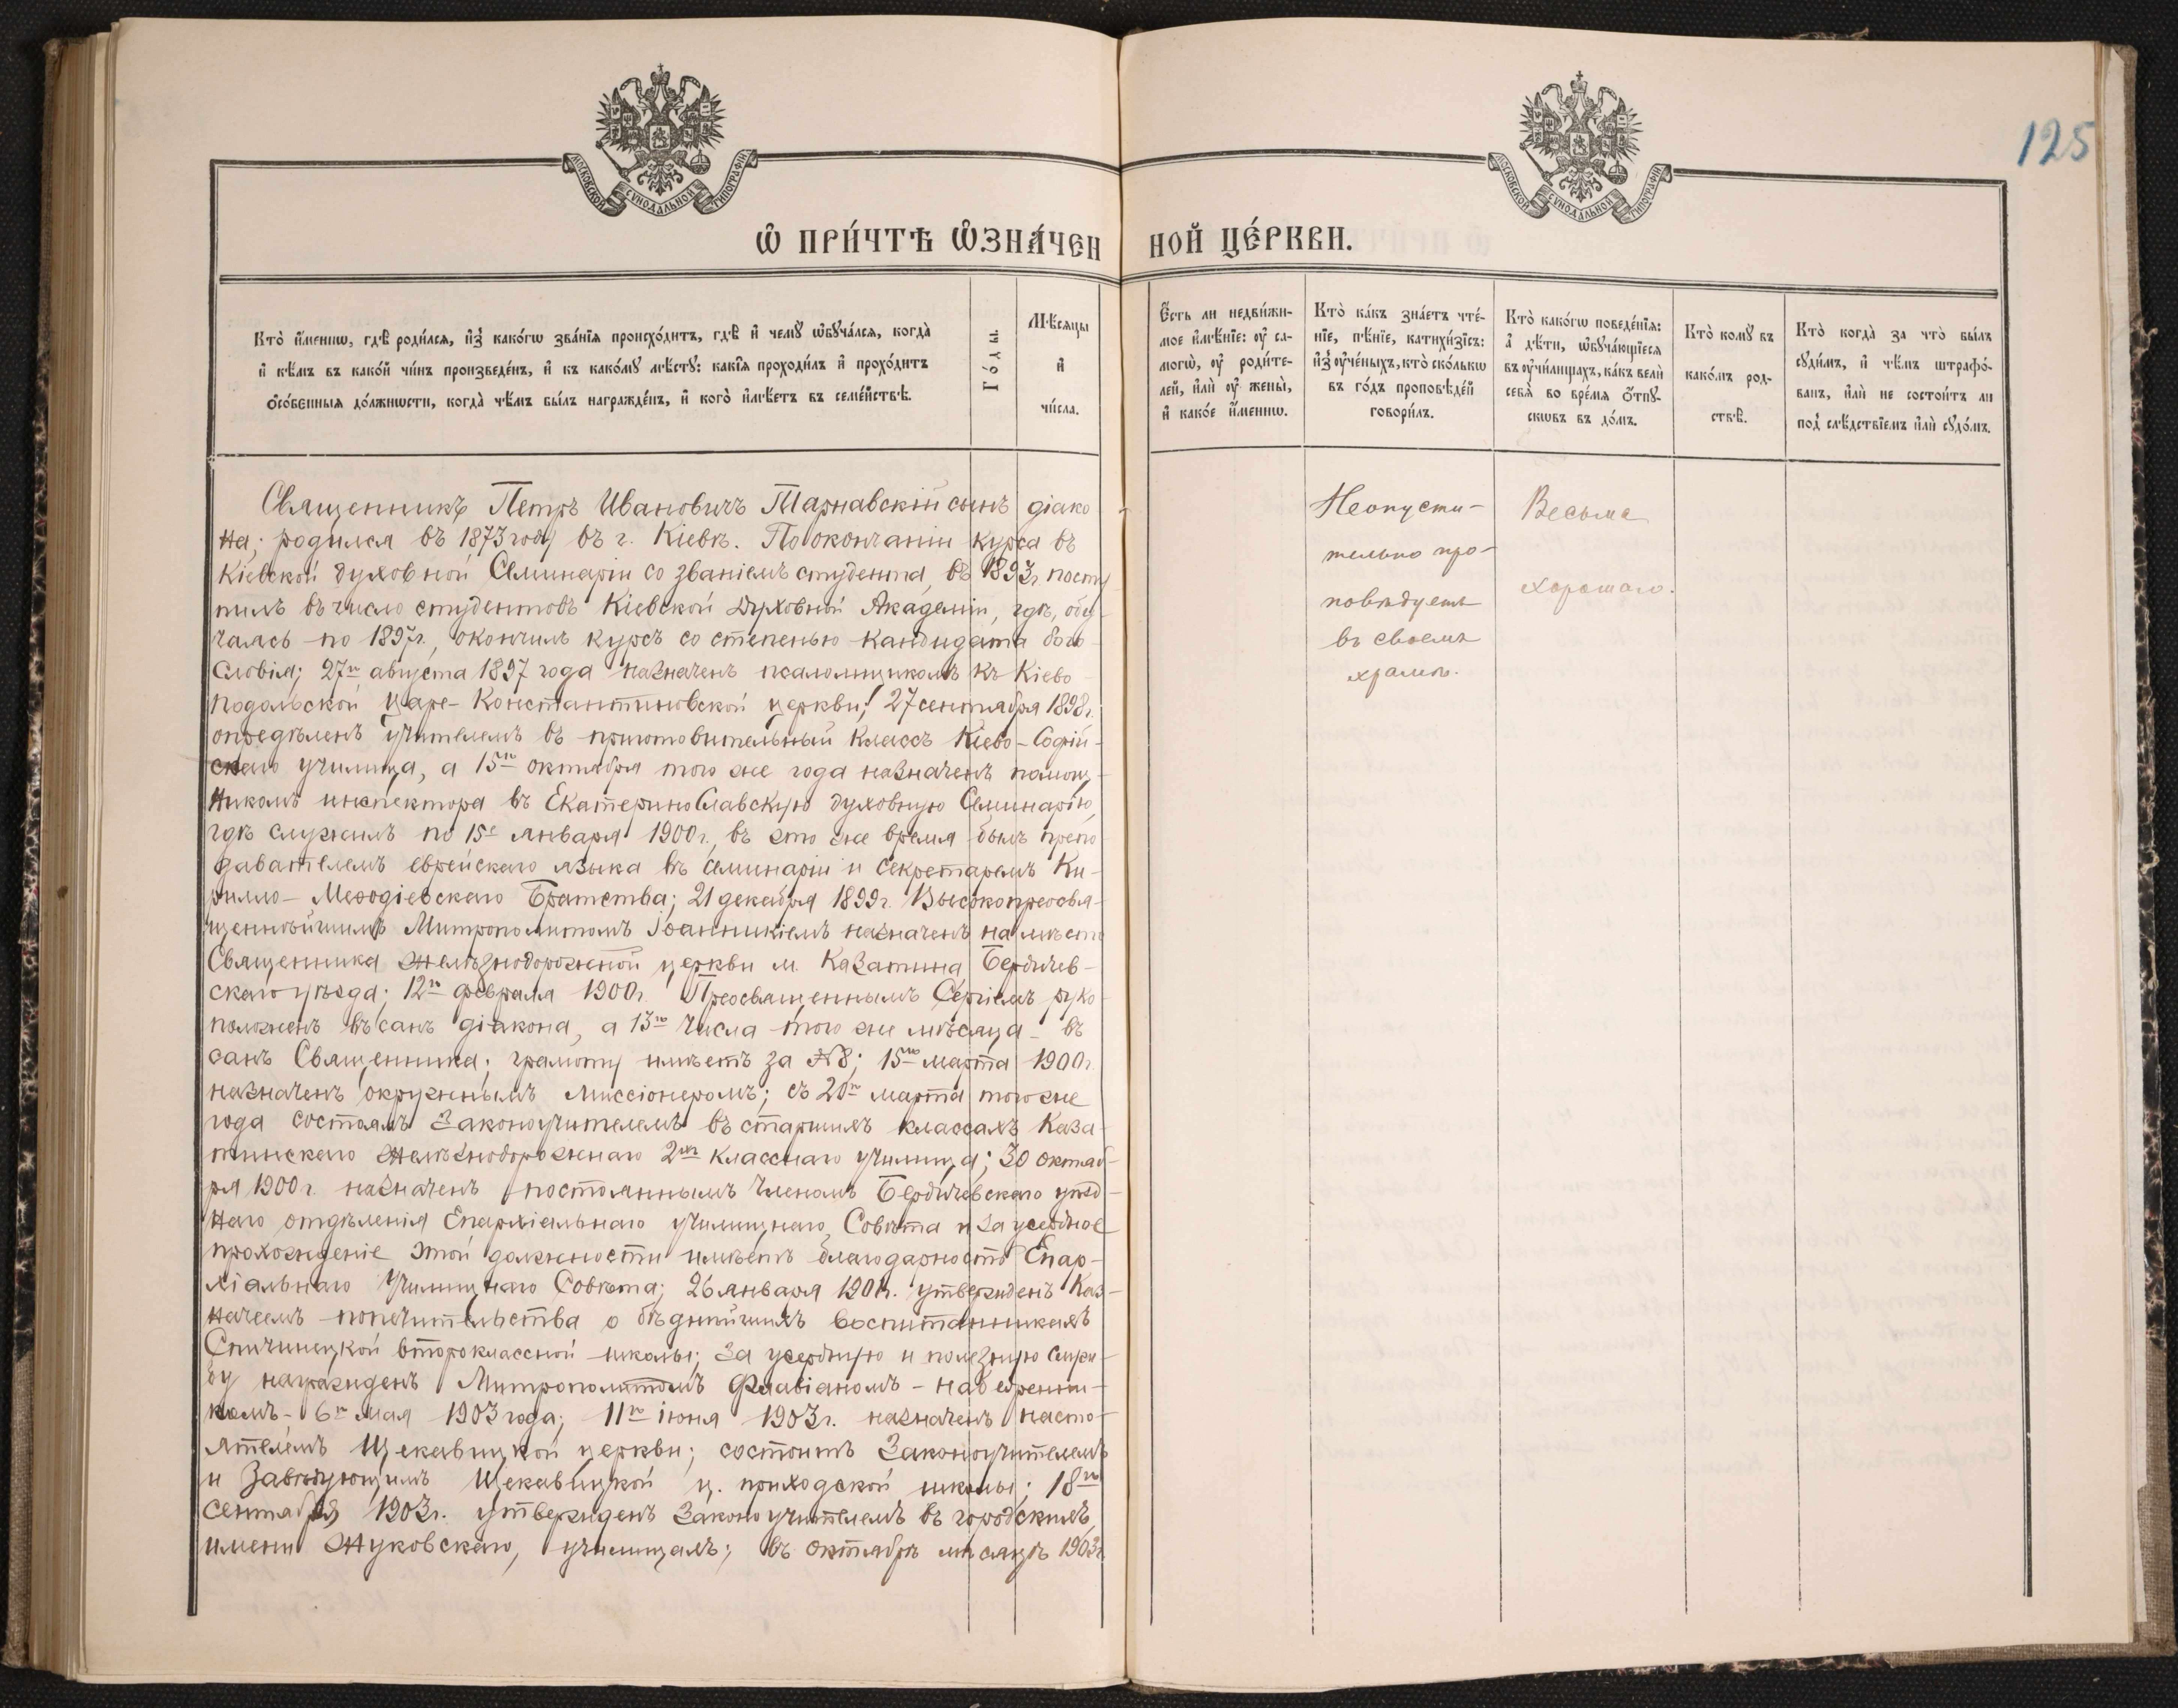 125
МОСКОВСКОЙ СУНОДАЛЬНОЙ ТИПОГРАФІИ
МОСКОВСКОЙ СУНОДАЛЬНОЙ ТИПОГРАФІИ
Ѡ ПРИ́ЧТѢ ѠЗНА́ЧЕННОЙ ЦЕ́РКВИ.
Кто̀ и́менно, гдѣ̀ роди́лся, и҆з̾ како́гѡ зва́нїѧ происхо́дитъ, гдѣ̀ и҆ чемꙋ̀ ѡ҆бꙋча́лсѧ, когда̀
и҆ кѣ́мъ въ како́й чи́нъ произведе́нъ, и҆ къ како́мꙋ мѣ́стꙋ: какі̑ѧ проходи́лъ и҆ прохо́дитъ
ѻ҆со́бенныѧ до́лжнѡсти, когда̀ чѣ́мъ бы́лъ награжде́нъ, и҆ кого̀ и҆мѣ́етъ въ семе́йствѣ.
Го́ды.
Мѣ́сѧцы
и҆
чи́сла.
Є҆́сть ли недви́жи-
мое и҆мѣ́нїе: ᲂу҆ са-
могѡ̀, ᲂу҆ роди́те-
лей, и҆лѝ ᲂу҆ жены̀,
и҆ како́е и҆́меннѡ.
Кто̀ ка́къ зна́етъ чте́-
нїе, пѣ́нїе, катихи́зїсъ:
и҆з̾ ᲂу҆че́ныхъ, кто̀ ско́лькѡ
въ го́дъ проповѣ́дей
говори́лъ.
Кто̀ како́гѡ поведе́нїѧ:
а҆ дѣ́ти, ѡ҆бꙋча́ющїесѧ
въ ᲂу҆чи́лищахъ, ка́къ велѝ
себѧ̀ во вре́мѧ ѻ҆́тпꙋ-
скѡвъ въ до́мъ.
Кто̀ комꙋ̀ въ
како́мъ род-
ствѣ̀.
Кто̀ когда̀ за что̀ бы́лъ
сꙋди́мъ, и҆ чѣ́мъ штрафо́-
ванъ, и҆лѝ не состои́тъ ли
под̾ слѣ́дствїемъ и҆лѝ сꙋдо́мъ.
Священникъ Петръ Ивановичъ Тарнавскій сынъ діако
на; родился въ 1873 году въ г. Кіевѣ. По окончаніи курса въ
Кіевской духовной Семинаріи со званіемъ студента, въ 1893 г. посту
пилъ въ число студентовъ Кіевской Духовной Академіи, гдѣ, обу-
чаясь по 1897 г., окончилъ курсъ со степенью кандидата бого-
словія; 27го августа 1897 года назначенъ псаломщикомъ къ Кіево-
подольской Царе-Константиновской церкви; 27 сентября 1898 г.
опредѣленъ учителемъ въ приготовительный классъ Кіево-Софій-
скаго училища, а 15го октября того же года назначенъ помощ-
никомъ инспектора въ Екатеринославскую духовную Семинарію,
гдѣ служилъ по 15е января 1900 г., въ это же время былъ препо-
давателемъ еврейскаго языка въ семинаріи и секретаремъ Ки-
рилло-Меѳодіевскаго Братства; 21 декабря 1899 г. Высокопреосвя-
щеннѣйшимъ Митрополитомъ Іоанникіемъ назначенъ на мѣсто
Священника желѣзнодорожной церкви м. Казатина Бердичев-
скаго уѣзда; 12го февраля 1900 г. Преосвященнымъ Сергіемъ руко-
положенъ въ санъ діакона, а 13го числа того же мѣсяца - въ
санъ Священника; грамоту имѣетъ за № 8; 15го марта 1900 г.
назначенъ окружнымъ миссіонеромъ; съ 20го марта того же
года состоялъ Законоучителемъ въ старшихъ классахъ Каза-
тинскаго желѣзнодорожнаго 2хъ класснаго училища; 30 октяб-
ря 1900 г. назначенъ постояннымъ членомъ Бердичевскаго уѣзд-
наго отдѣленія Епархіальнаго училищнаго Совѣта и за усердное
прохожденіе этой должности имѣетъ благодарность Епар-
хіальнаго Училищнаго Совѣта; 26 января 1901 г. утвержденъ Каз-
начеемъ попечительства о бѣднѣйшихъ воспитанникахъ
Спичинецкой второклассной школы; за усердную и полезную служ-
бу награжденъ Митрополитомъ Флавіаномъ - набедренни-
комъ - 6го мая 1903 года; 11го іюня 1903 г. назначенъ насто-
ятелемъ Щекавицкой церкви; состоитъ Законоучителемъ
и Завѣдующимъ Щекавицкой ц. приходской школы; 18го
сентября 1903 г. утвержденъ Законоучителемъ въ городскихъ,
имени Жуковскаго, училищахъ; въ октябрѣ мѣсяцѣ 1903 г.
Неопусти-
тельно про-
повѣдуетъ
въ своемъ
храмѣ.
Весьма
хорошаго.